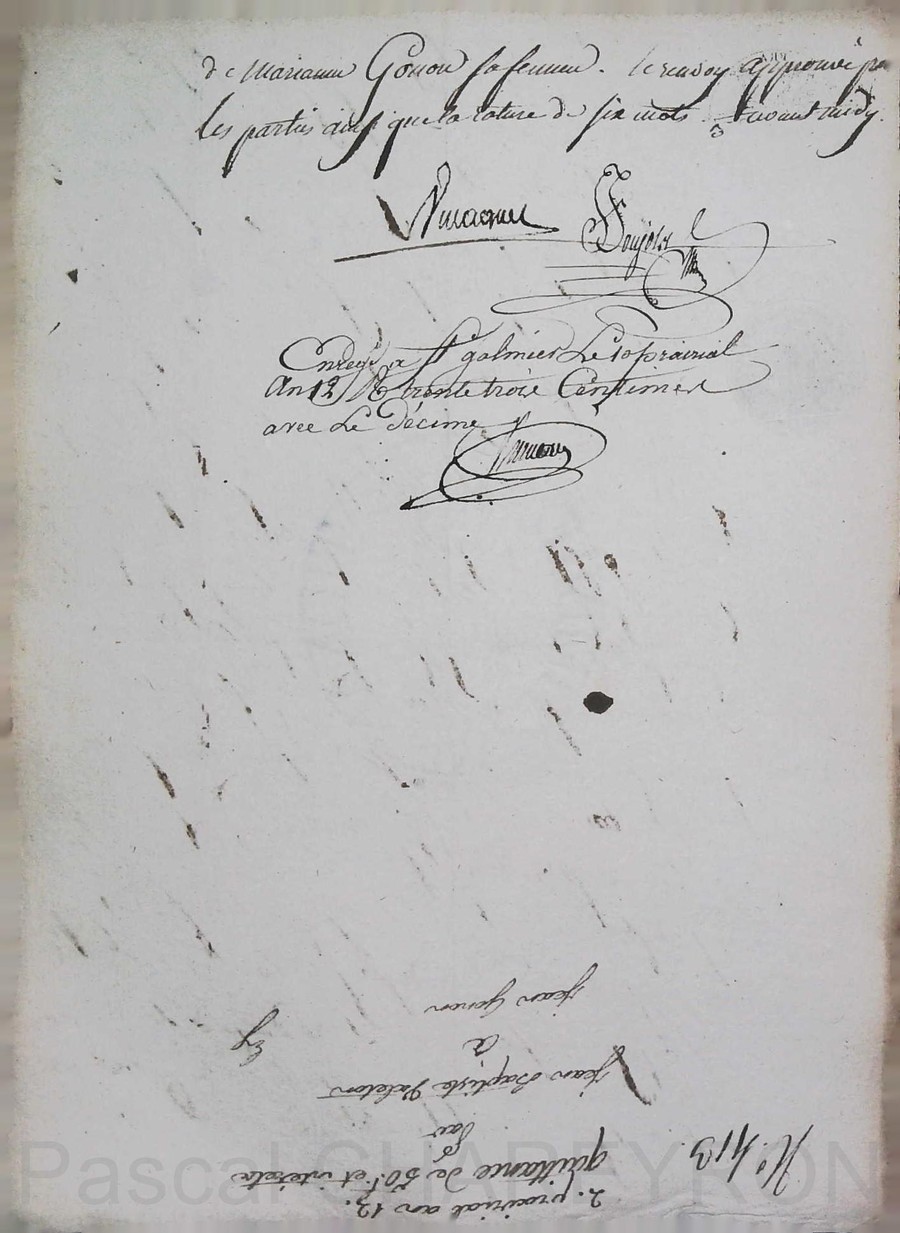 de Marianne Gonon sa femme. le renvoy approuvé par
les parties ainsi que la rature de six mots. avant midy.
Enregé a St galmier Le 10 prairial
An 12 R trente trois Centimes
avec Le Décime
2. prairial an 12.
quittance de 50f et intérêts
par
Jean Baptiste
a
Jean Gonon
N.° 413.
Pascal CHAPEYRON